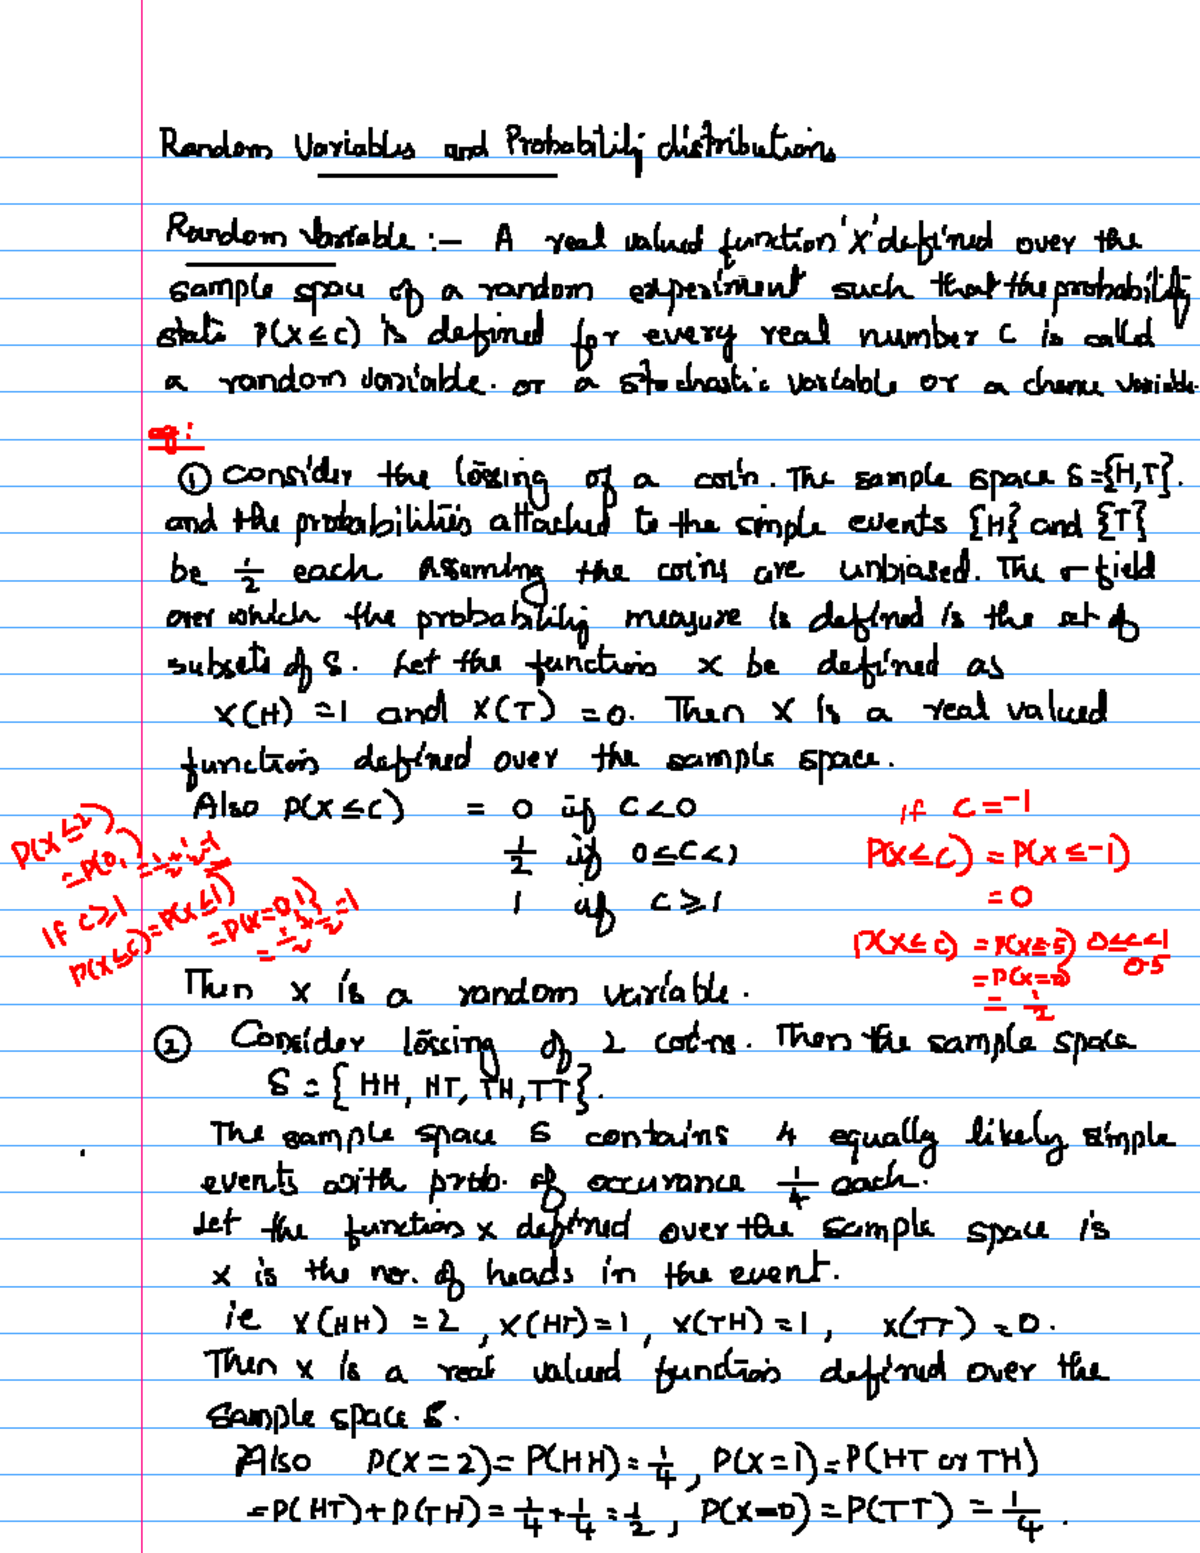 Random Variables and Probability distributions
Random Variable :- A real valued function 'X' defined over the
sample space of a random experiment such that the probability
state P(X≤C) is defined for every real number C is called
a random variable. or a stochastic variable or a chance variable.
eg:
① Consider the tossing of a coin. The sample space S={H,T}.
and the probabilities attached to the simple events {H} and {T}
be 1/2 each Assuming the coins are unbiased. The σ-field
over which the probability measure is defined is the set of
subsets of S. Let the function X be defined as
X(H) =1 and X(T) =0. Then X is a real valued
function defined over the sample space.
Also P(X≤C) = 0 if C<0
1/2 if 0≤C<1
1 if C≥1
If C=-1
P(X≤C) = P(X≤-1)
= 0
P(X≤C) = P(X≤.5) 0≤C<1
0.5
= P(X=0)
= 1/2
P(X≤2)
= P(0,1) = 1/2+1/2=1
If C≥1
P(X≤C) = P(X≤1)
= P(X=0,1)
= 1/2+1/2=1
Then X is a random variable.
② Consider tossing of 2 coins. Then the sample space
S = { HH, HT, TH, TT}.
The sample space S contains 4 equally likely simple
events with prob. of occurance 1/4 each.
Let the function X defined over the sample space is
X is the no. of heads in the event.
ie X(HH) =2, X(HT)=1, X(TH)=1, X(TT)=0.
Then X is a real valued function defined over the
Sample space S.
Also P(X=2)= P(HH)=1/4, P(X=1)=P(HT or TH)
=P(HT)+P(TH)=1/4+1/4=1/2, P(X=0)=P(TT)=1/4.